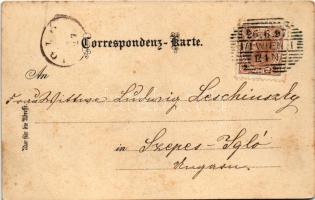 Correspondenz-Karte.
26.6.97
1/1 WIEN 1
An
Frau Witwe Ludwig Leschinszky
in Szepes-Igló
Ungarn.
Nur für die Adresse.